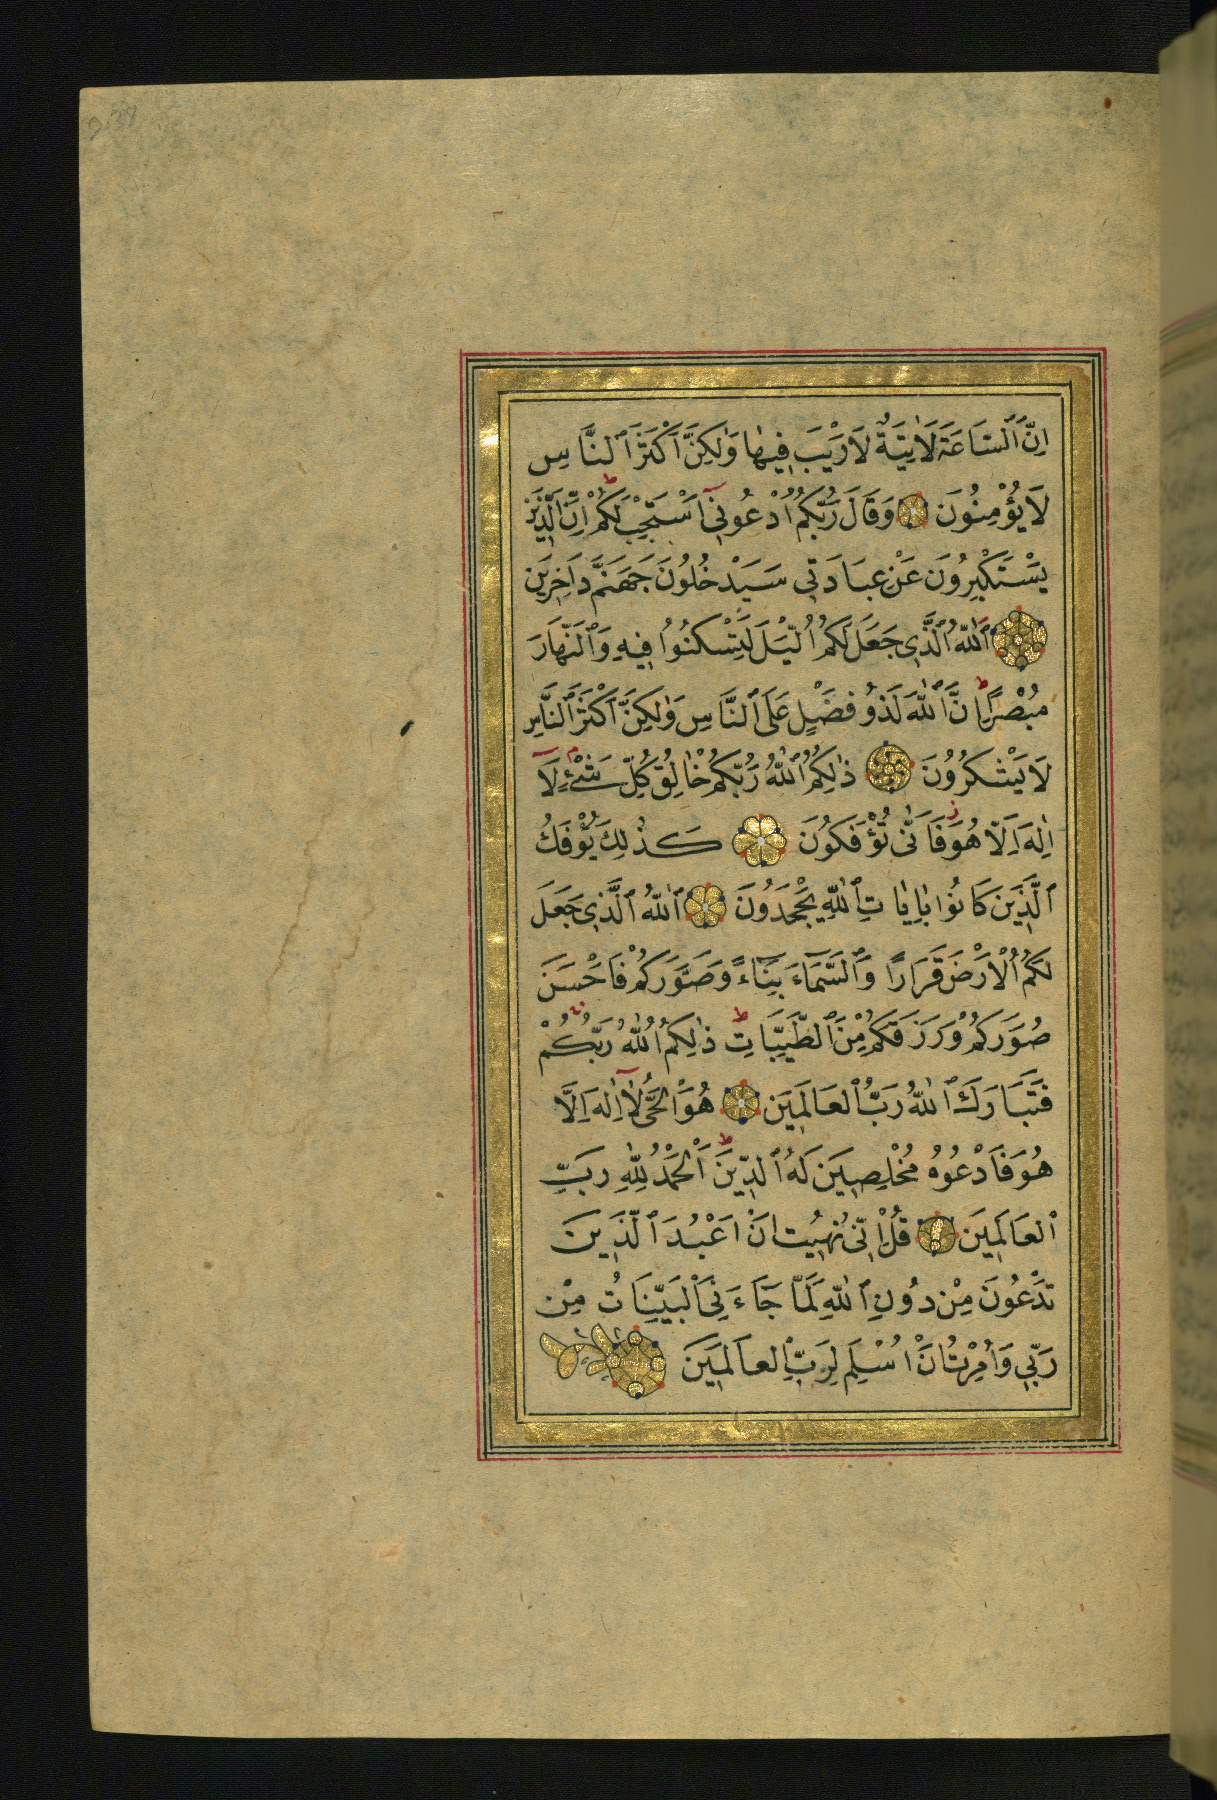 اِنَّ ٱلسَّاعَةَ لَاٰتِيَةٌ لَا رَيْبَ فِيهَا وَلٰكِنَّ اَكْثَرَ ٱلنَّاسِ
لَا يُؤْمِنُونَ وَقَالَ رَبُّكُمُ ٱدْعُونِٓى اَسْتَجِبْ لَكُمْ اِنَّ ٱلَّذِينَ
يَسْتَكْبِرُونَ عَنْ عِبَادَتِى سَيَدْخُلُونَ جَهَنَّمَ دَاخِرِينَ
اَللّٰهُ ٱلَّذِى جَعَلَ لَكُمُ ٱلَّيْلَ لِتَسْكُنُوا فِيهِ وَٱلنَّهَارَ
مُبْصِرًا اِنَّ ٱللّٰهَ لَذُو فَضْلٍ عَلَى ٱلنَّاسِ وَلٰكِنَّ اَكْثَرَ ٱلنَّاسِ
لَا يَشْكُرُونَ ذٰلِكُمُ ٱللّٰهُ رَبُّكُمْ خَالِقُ كُلِّ شَىْءٍ لَٓا
اِلٰهَ اِلَّا هُوَ فَاَنّٰى تُؤْفَكُونَ كَذٰلِكَ يُؤْفَكُ
ٱلَّذِينَ كَانُوا بِاٰيَاتِ ٱللّٰهِ يَجْحَدُونَ ٱللّٰهُ ٱلَّذِى جَعَلَ
لَكُمُ ٱلْاَرْضَ قَرَارًا وَٱلسَّمَٓاءَ بِنَٓاءً وَصَوَّرَكُمْ فَاَحْسَنَ
صُوَرَكُمْ وَرَزَقَكُمْ مِنَ ٱلطَّيِّبَاتِ ذٰلِكُمُ ٱللّٰهُ رَبُّكُمْ
فَتَبَارَكَ ٱللّٰهُ رَبُّ ٱلْعَالَمِينَ هُوَ ٱلْحَىُّ لَٓا اِلٰهَ اِلَّا
هُوَ فَادْعُوهُ مُخْلِصِينَ لَهُ ٱلدِّينَ اَلْحَمْدُ لِلّٰهِ رَبِّ
ٱلْعَالَمِينَ قُلْ اِنِّى نُهِيتُ اَنْ اَعْبُدَ ٱلَّذِينَ
تَدْعُونَ مِنْ دُونِ ٱللّٰهِ لَمَّا جَٓاءَنِىَ ٱلْبَيِّنَاتُ مِنْ
رَبِّى وَاُمِرْتُ اَنْ اُسْلِمَ لِرَبِّ ٱلْعَالَمِينَ